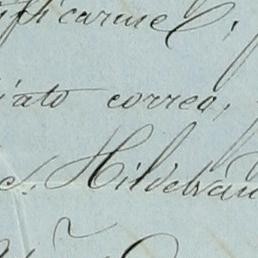 ificarme
iato correo,
Hildebran